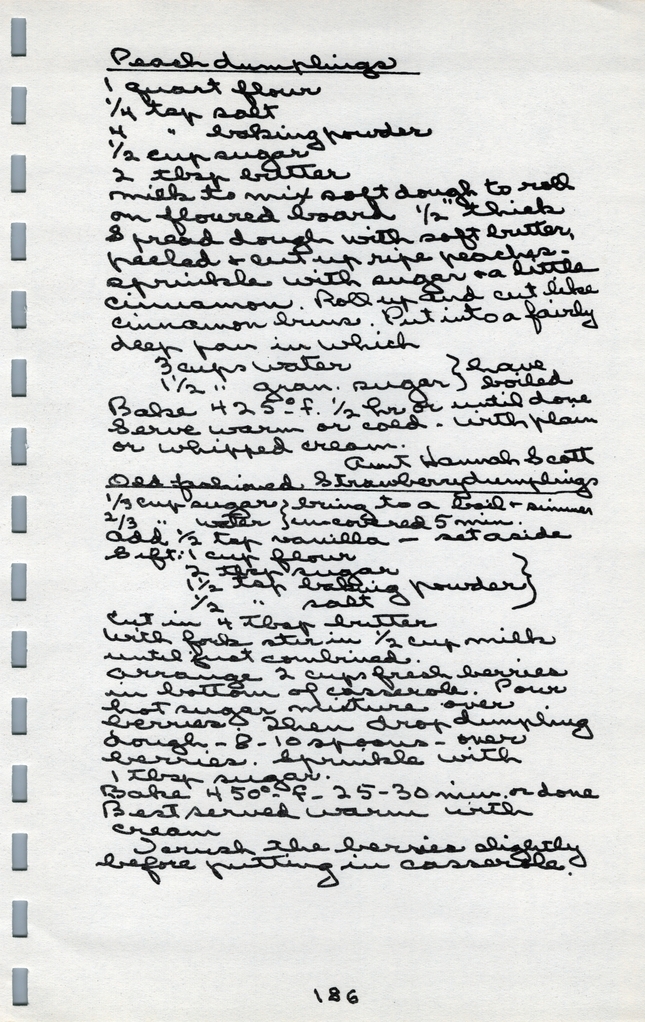 Peach dumplings
1 quart flour
1/4 tsp salt
4 " baking powder
1/2 cup sugar
2 tbsp butter
milk to mix soft dough to roll
on floured board 1/2" thick
Spread dough with soft butter,
peeled + cut up ripe peaches -
sprinkle with sugar + a little
cinnamon. Roll up and cut like
cinnamon buns. Put into a fairly
deep pan in which
3 cups water } have
1 1/2 " gran. sugar } boiled
Bake 425° f. 1/2 hr or until done
Serve warm or cold - with plain
or whipped cream.
Aunt Hannah Scott
Old fashioned Strawberry dumplings
1/3 cup sugar } bring to a boil + simmer
2/3 " water } uncovered 5 min.
Add 1/2 tsp vanilla - set aside
Sift: 1 cup flour
2 tbsp sugar
1 1/2 tsp baking powder }
1/2 " salt
Cut in 4 tbsp butter
With fork stir in 1/2 cup milk
until just combined.
Arrange 2 cups fresh berries
in bottom of casserole. Pour
hot sugar mixture over
berries. Then drop dumpling
dough - 8 - 10 spoons - over
berries. Sprinkle with
1 tbsp sugar.
Bake 450° - f - 25 - 30 min. or done
Best served warm with
cream
I crush the berries slightly
before putting in casserole.
186